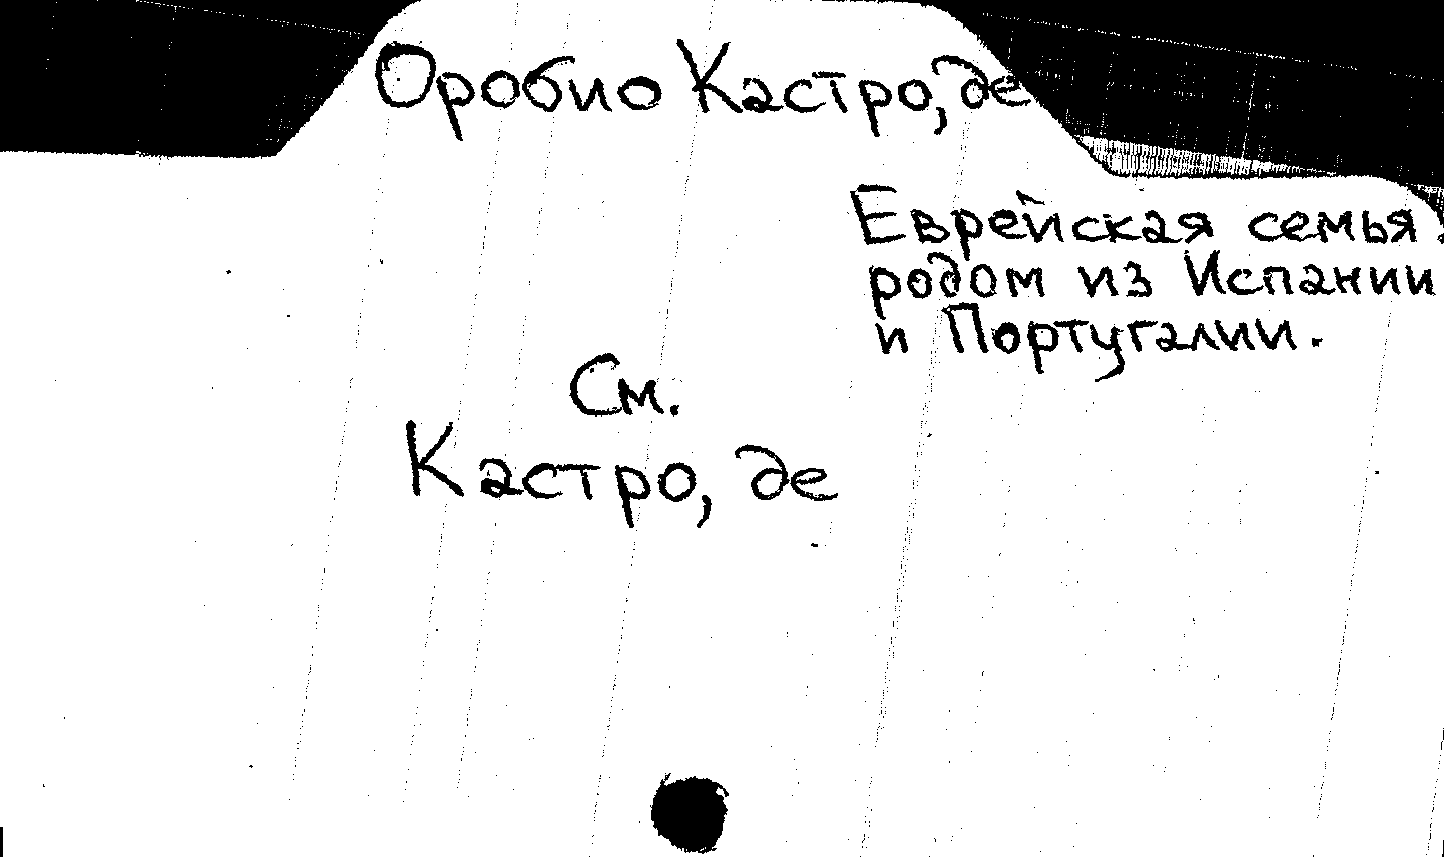 Оробио Кастро, де
Еврейская семья
родом из Испании
и Португалии.
См.
Кастро, де